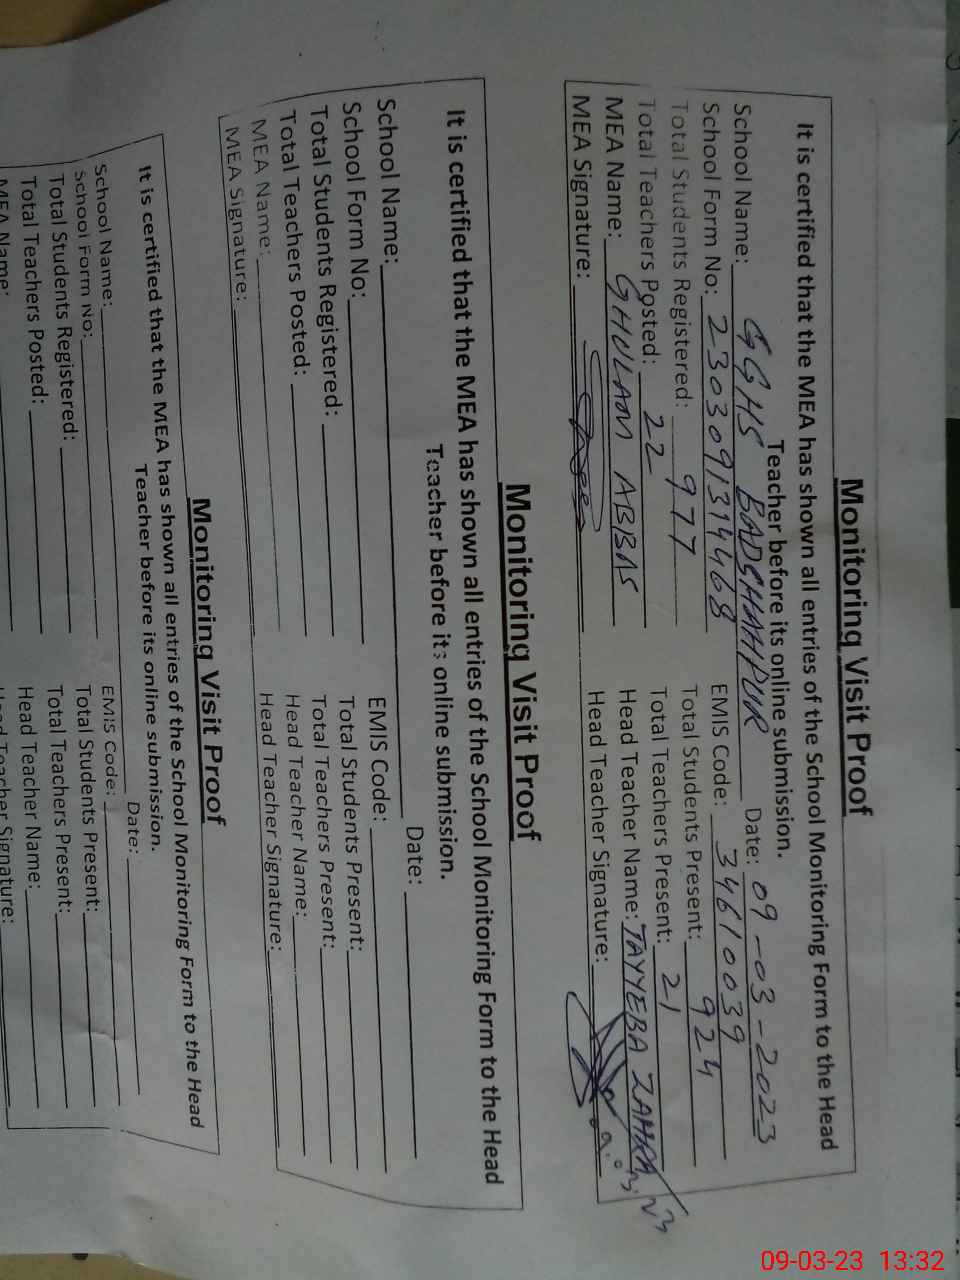 Monitoring Visit Proof
It is certified that the MEA has shown all entries of the School Monitoring Form to the Head
Teacher before its online submission.
School Name: GGHS BADSHAHPUR Date: 09-03-2023
School Form No: 2303091314468 EMIS Code: 34610039
Total Students Registered: 977 Total Students Present: 924
Total Teachers Posted: 22 Total Teachers Present: 21
MEA Name: GHULAM ABBAS Head Teacher Name: TAYYEBA ZAHRA
MEA Signature: Head Teacher Signature:
Monitoring Visit Proof
It is certified that the MEA has shown all entries of the School Monitoring Form to the Head
Teacher before its online submission.
School Name: Date:
School Form No: EMIS Code:
Total Students Registered: Total Students Present:
Total Teachers Posted: Total Teachers Present:
MEA Name: Head Teacher Name:
MEA Signature: Head Teacher Signature:
Monitoring Visit Proof
It is certified that the MEA has shown all entries of the School Monitoring Form to the Head
Teacher before its online submission.
School Name: Date:
School Form No: EMIS Code:
Total Students Registered: Total Students Present:
Total Teachers Posted: Total Teachers Present:
MEA Name: Head Teacher Name:
Head Teacher Signature:
09-03-23 13:32